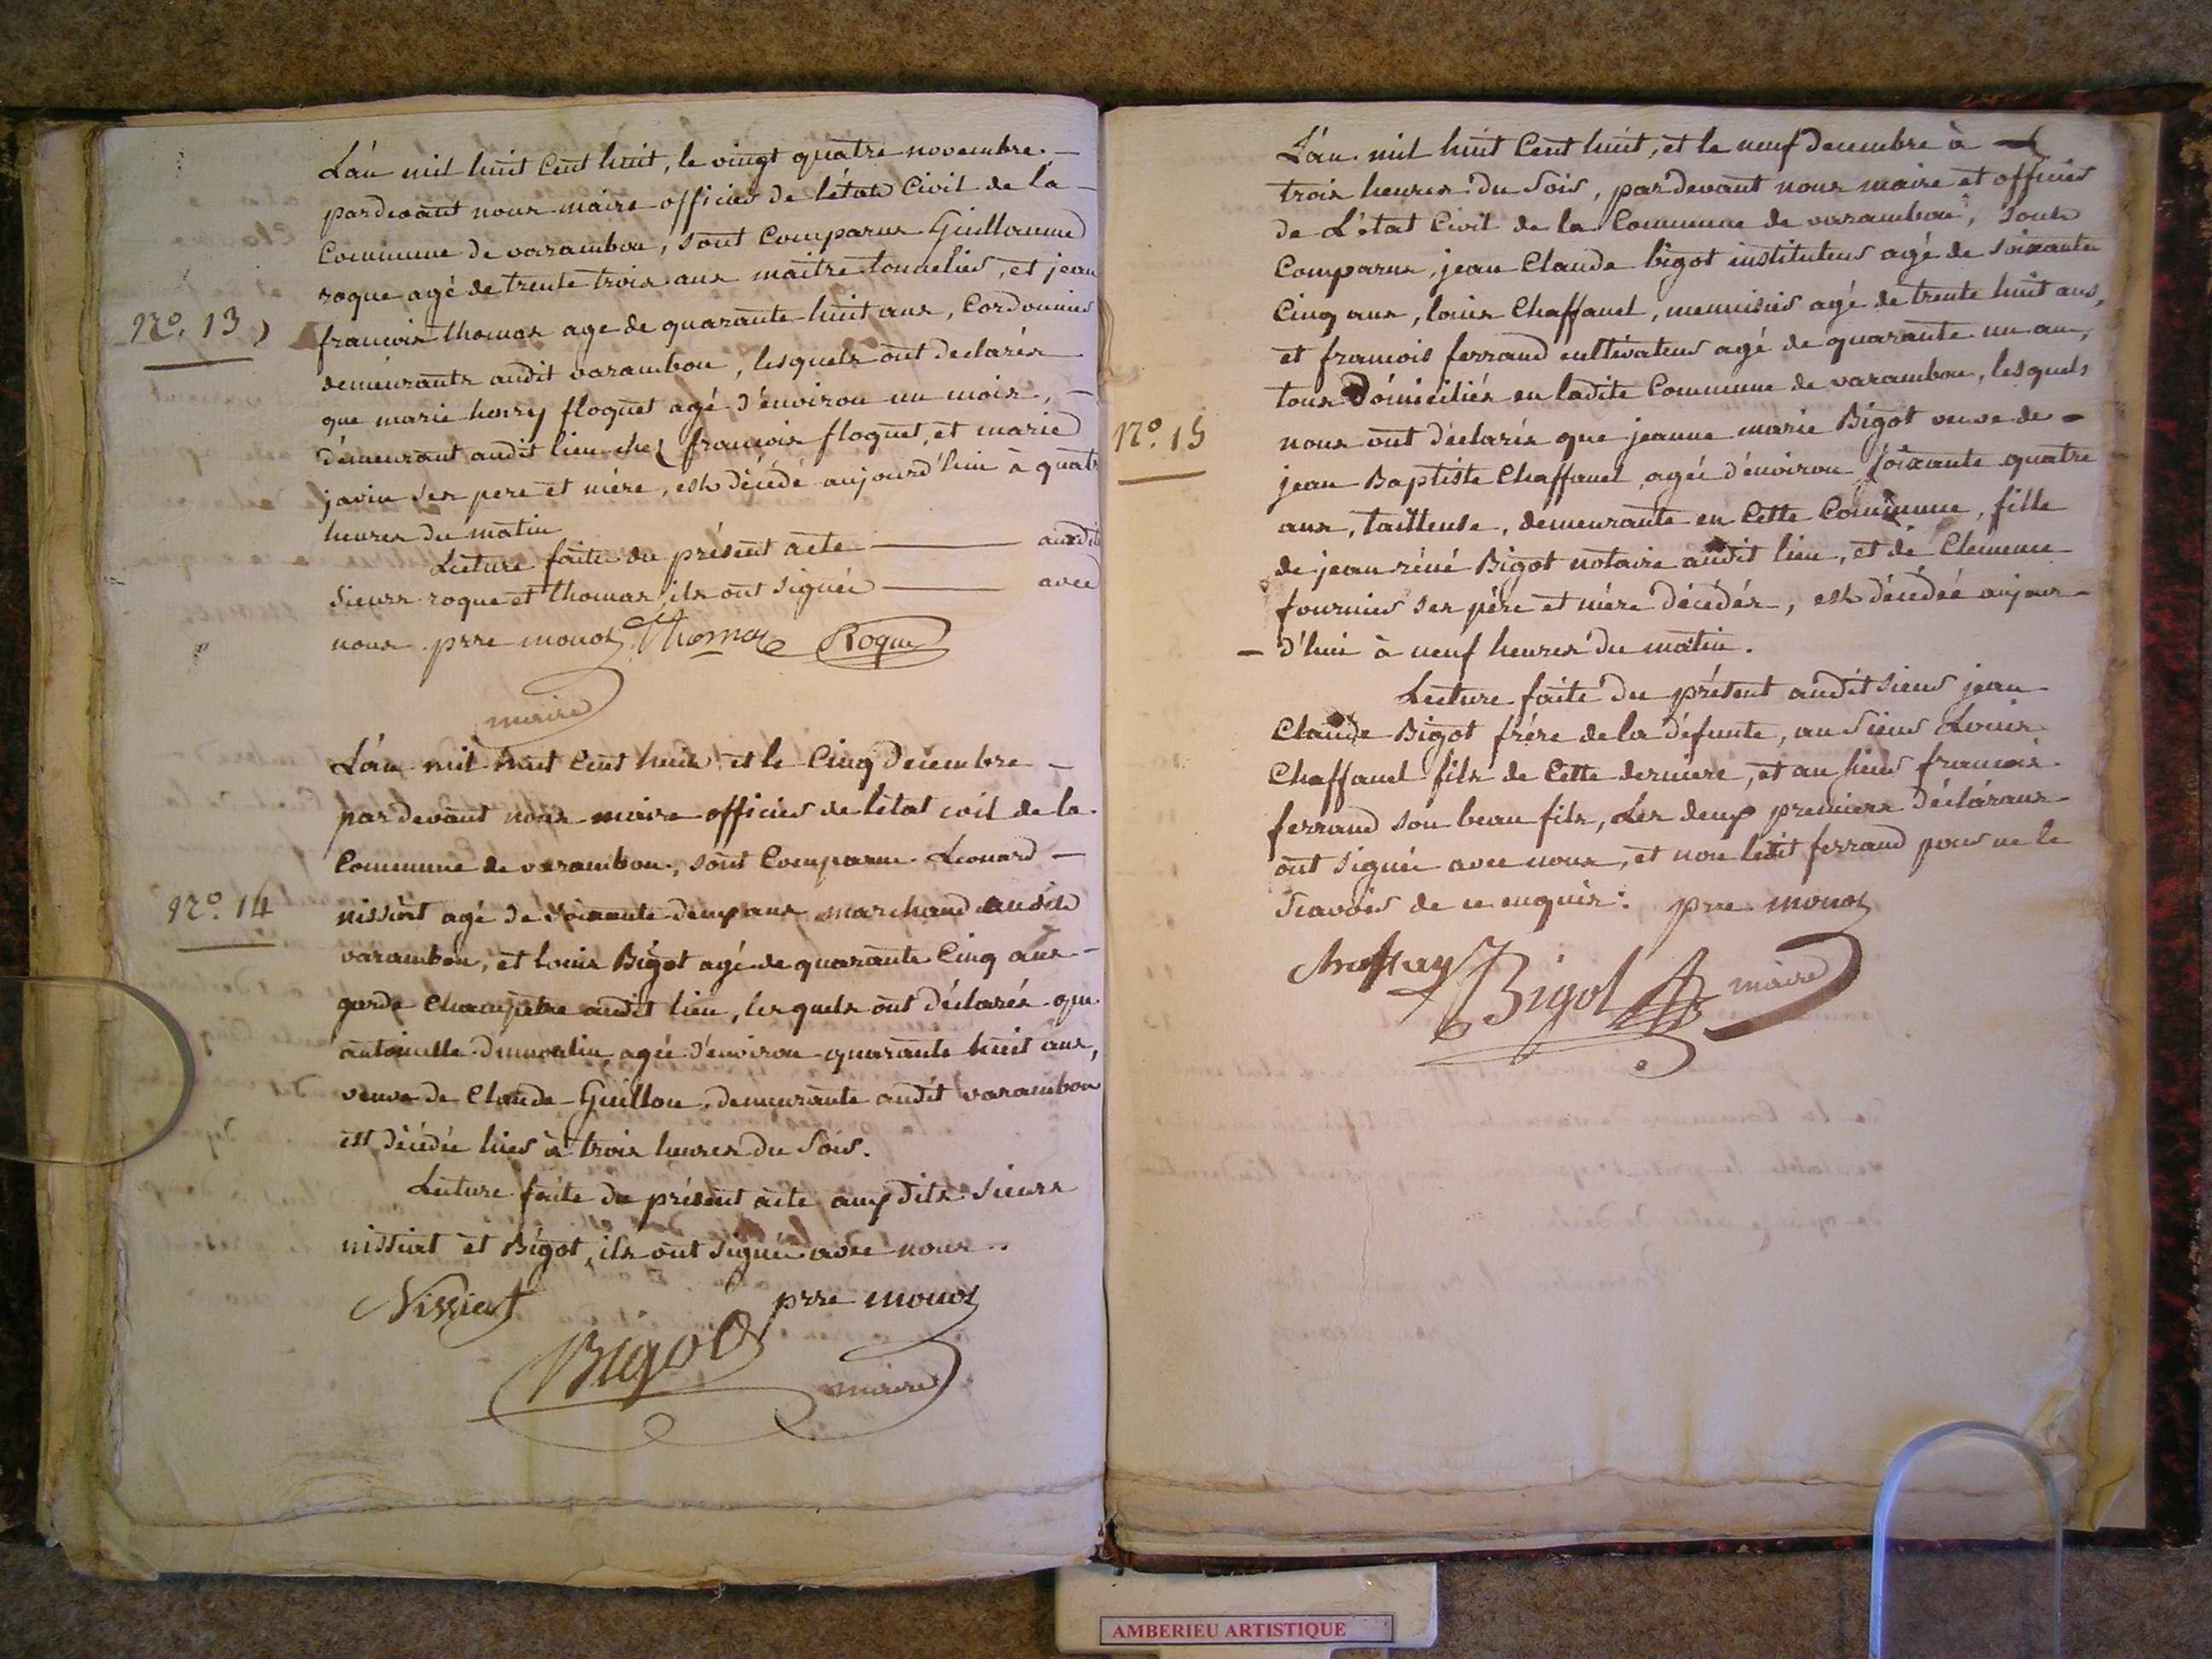 L'an mil huit Cent huit, le vingt quatre novembre. —
pardevant nous maire officier de l'état Civil de la —
Commune de varambon, sont Comparus Guillaume
roque agé de trente trois ans maitre tonnelier, et jean
N.º 13
francois thomas age de quarante huit ans, Cordonnier
demeurants audit varambon, lesquels ont declarés
que marie henry floquet agé d'environ un mois, —
démeurant audit lieu chez françois floquet, et marie
javin ses pere et mére, est décédé aujourd'hui à quatre
heures du matin
Lecture faite du présent acte — auxdits
Sieurs roque et thomas, ils ont signés — avec
nous. prre monos Thomas Roque
maire
L'an mil huit Cent huit et le Cinq Decembre —
pardevant nous maire officier de létat civil de la
Commune de varambon, sont Comparus Leonard —
N.º 14
nissiat agé de soixante deux ans marchand audit
varambon, et louis Bigot agé de quarante Cinq ans —
garde Champetre audit lieu, les quels ont déclarés que
antoinette dumoulin, agée d'environ quarante huit ans,
veuve de Claude Guillon, demeurante audit varambon
est décédée hier à trois heures du Soir.
Lecture faite du présent acte aux dits Sieurs
nissiat et Bigot, ils ont signés avec nous..
Nissiat prre monos
Bigot
maire
L'an mil huit Cent huit, et le neuf decembre à —
trois heures du Soir, pardevant nous maire et officier
de L'état Civil de la Commune de varambon, sont
Comparus, jean Claude bigot instituteur agé de soixante
Cinq ans, louis Chaffanel, menuisier agé de trente huit ans,
et francois ferrand cultivateur agé de quarante un an,
tous Domiciliés en ladite Commune de varambon, lesquels
N.º 15
nous ont déclarés que jeanne marie Bigot veuve de —
jean Baptiste Chaffanel, agée d'environ soixante quatre
ans, tailleuse, demeurante en Cette Commune, fille
de jean réné Bigot notaire audit lieu, et de Clemence
fournier ses pére et mére décédés, est décédée aujour-
- d'hui à neuf heures du matin.
Lecture faite du présent audit sieur jean
Claude Bigot frére de la défunte, au Sieur Louis
Chaffanel fils de Cette derniere, et au sieur francois
ferrand son beau fils, Les deux premiers déclarans
ont signés avec nous, et non ledit ferrand pour ne le
Scavoir de ce enquis: prre monos
Bigot maire
AMBERIEU ARTISTIQUE